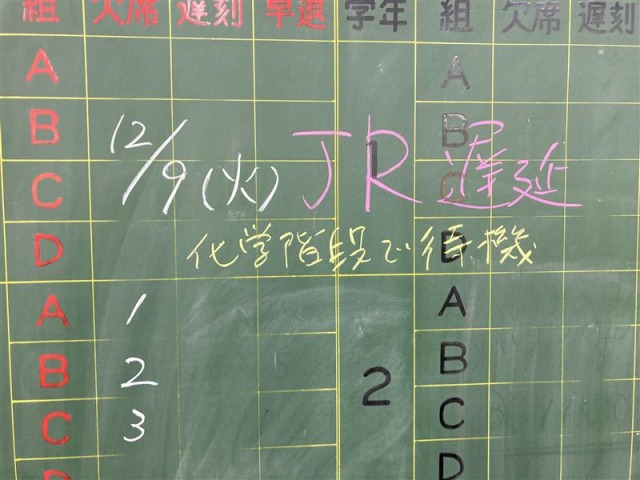 組 欠席 遅刻 早退 学年 組 欠席 遅刻
A A
B B
12/9(火) JR遅延
C C
化学階段で待機
D D
A 1 A
B 2 2 B
C 3 C
D